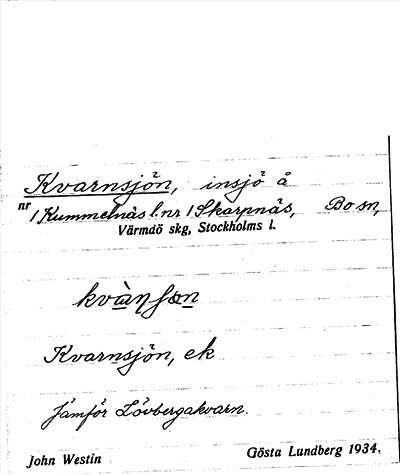 Kvarnsjön, insjö å
nr 1 Kummelnäs l. nr 1 Skarpnäs, Bo sn,
Värmdö skg, Stockholms l.
Kvarnsjön, ek
Jämför Lövbergakvarn.
John Westin Gösta Lundberg 1934.